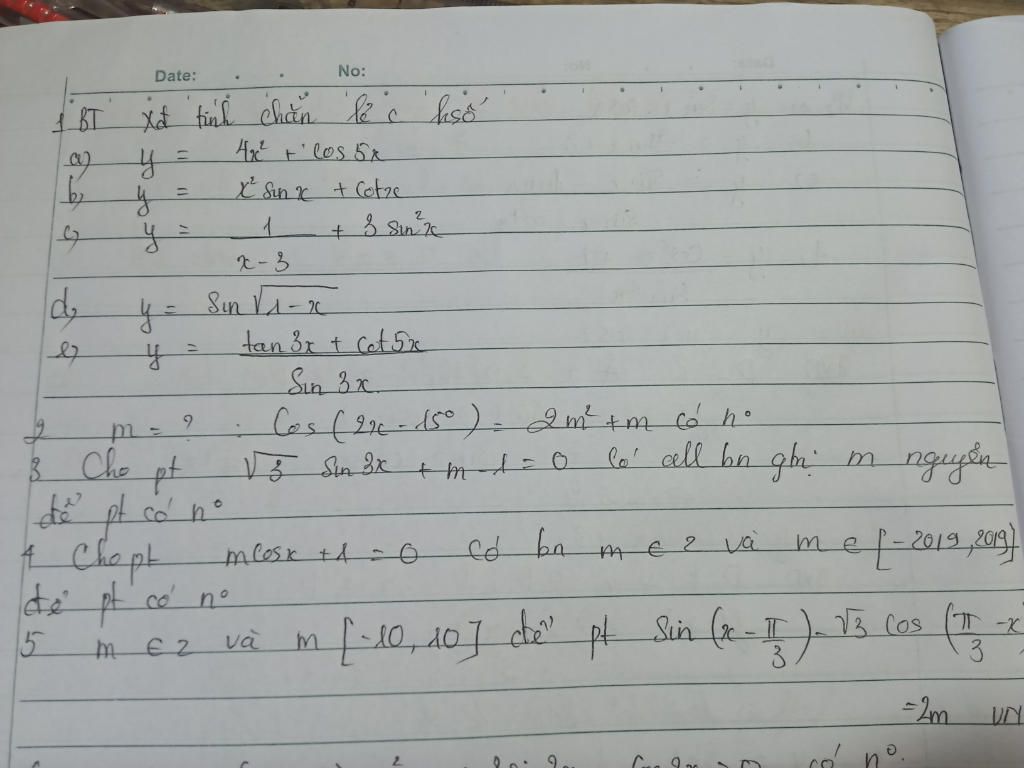 Date: . . No:
1 BT xđ tính chẵn lẻ c hsố
a) y = 4x² + cos 5x
b) y = x² sin x + cot x
c) y = 1 / (x - 3) + 3 sin² x
d) y = sin √(1 - x)
e) y = (tan 3x + cot 5x) / sin 3x
2 m = ? : Cos (2x - 15°) = 2m² + m có n°
3 Cho pt √3 sin 3x + m - 1 = 0 Có all bn gtrị m nguyên
để pt có n°
4 Cho pt m cos x + 1 = 0 có bn m ∈ z và m ∈ [-2019, 2019]
để pt có n°
5 m ∈ z và m [-10, 10] để pt sin (x - π/3) - √3 cos (π/3 - x)
= 2m VN
có n°.